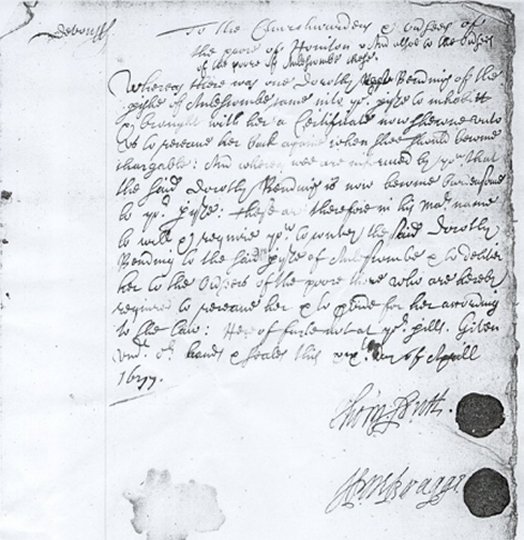 Devon ss
To the Churchwardens & Ov'seers of
the poore of Honiton & And alsoe to the Ov'seers
of the poore of Aulescombe these.
Whereas there was one Dorothy Bendinis of the
p'ishe of Aulescombe came into yo'r p'ishe to inhabitt
& brought with her a Certificate now shewne unto
us to receave her back againe when shee should become
chargable: And whereas wee are informed by yo'u that
the said Dorothy Bendinis is now become burdensome
to yo'r p'ishe: these are therefore in his Ma'ties name
to will & require yo'u to convey the said Dorothy
Bendinis to the said p'ishe of Aulescombe & to deliver
her to the Ov'seers of the poore there who are hereby
required to receave her & to p'vide for her according
to the Law: Hereof faile not at yo'r p'ills. Given
und'r o'r hands & seales this day of Aprill
1677.